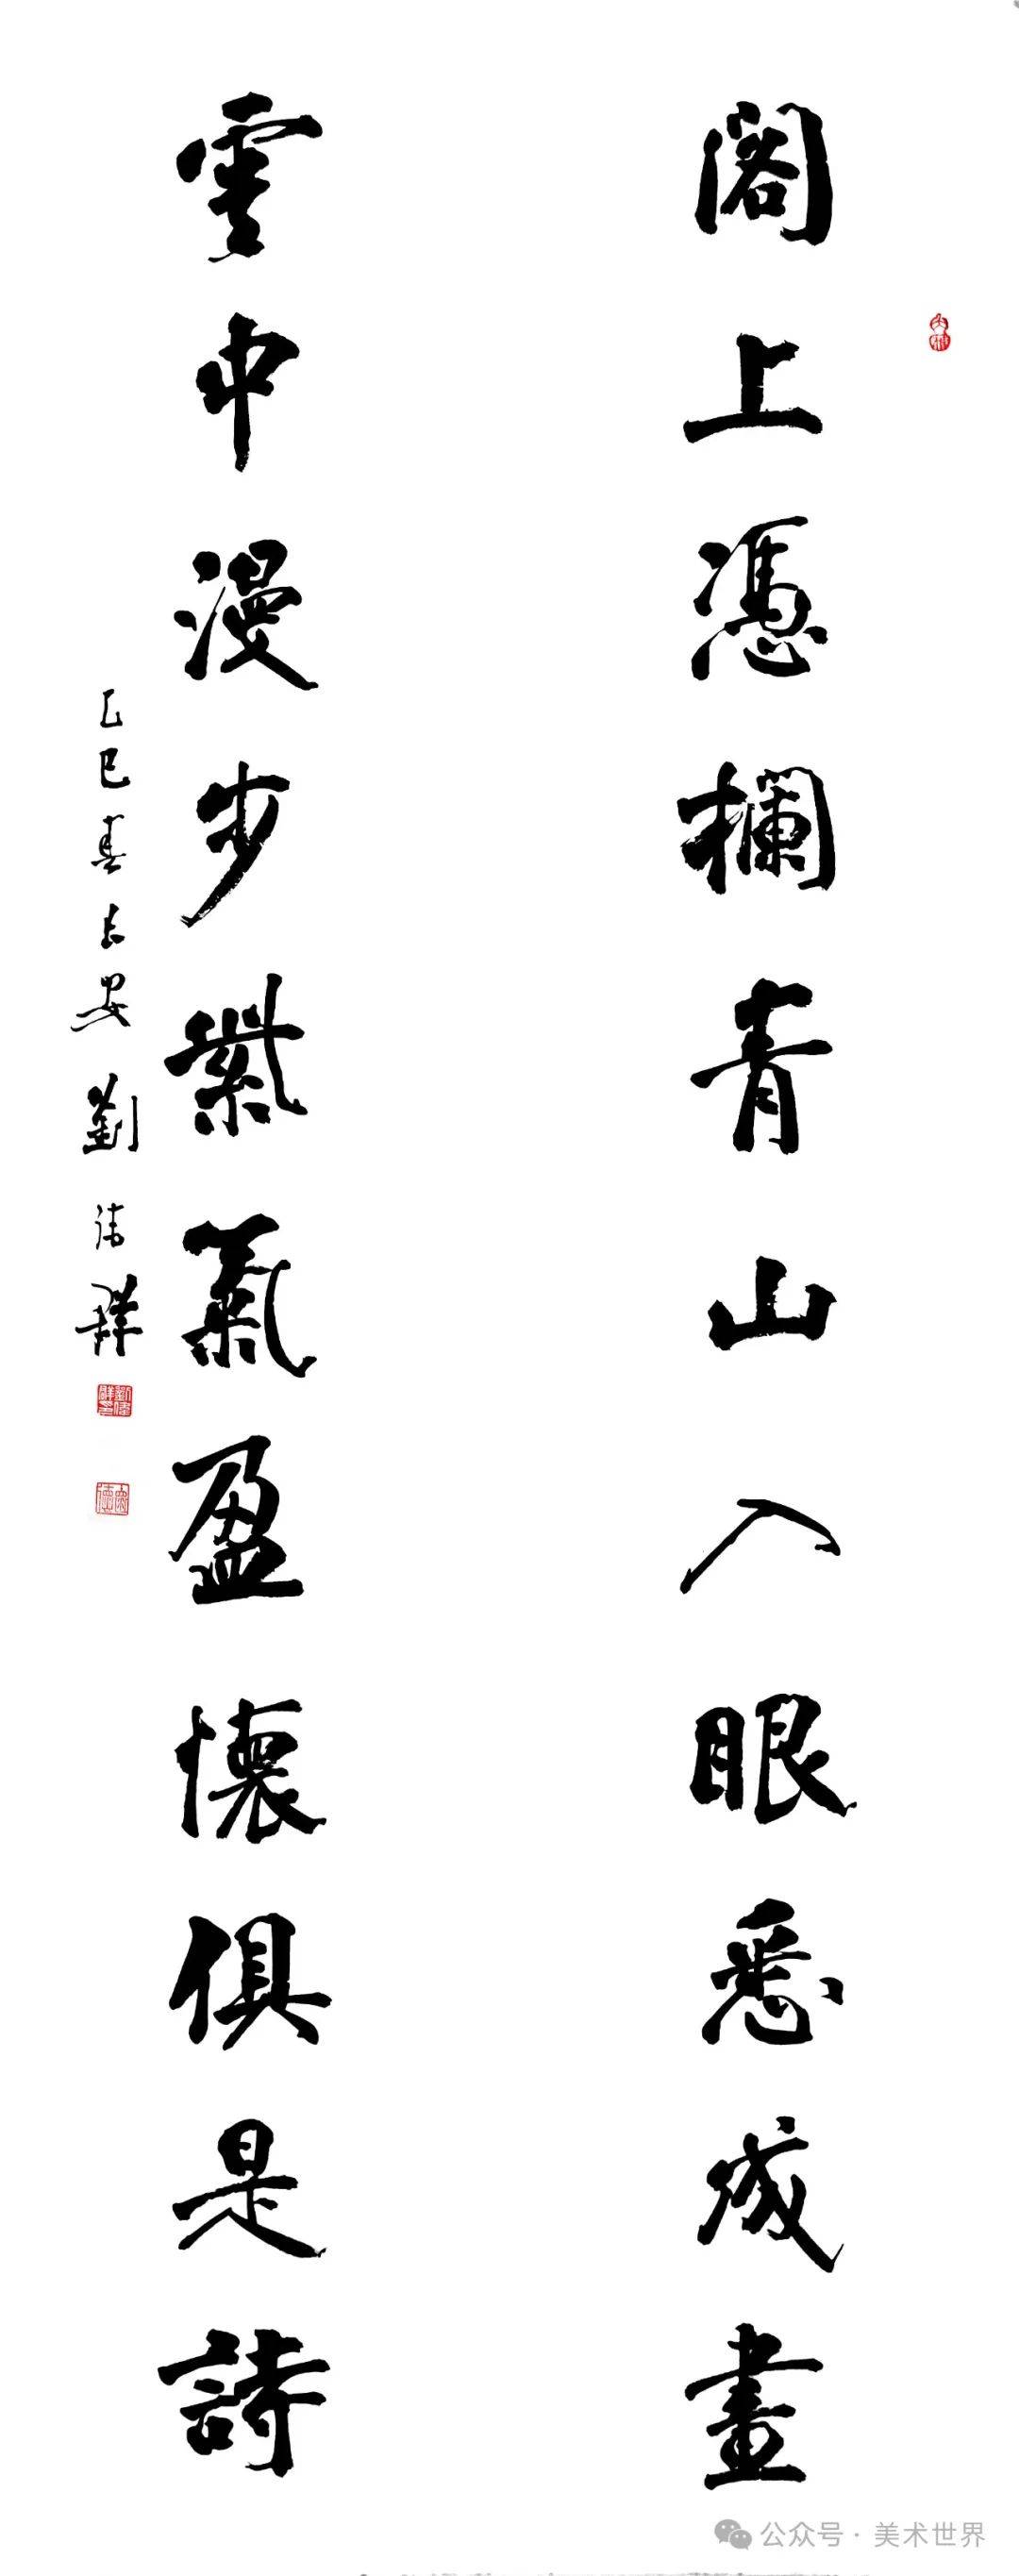 閣上憑欄青山入眼悉成畫
雲中漫步紫氣盈懷俱是詩
乙巳春長安劉偉祥
公众号·美术世界